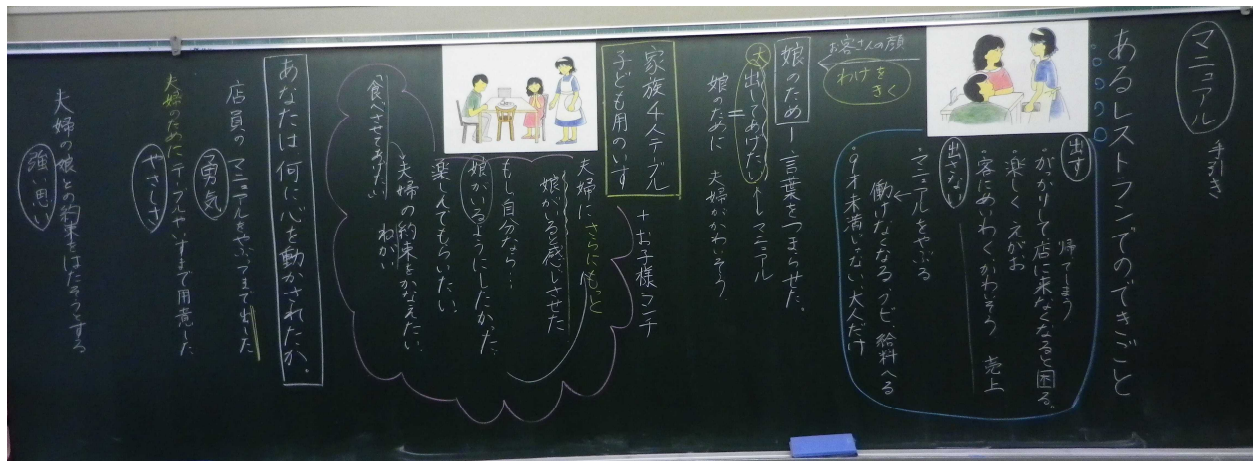 マニュアル 手引き
あるレストランでのできごと
出す
がっかりして店に来なくなると困る。
帰ってしまう
・楽しくえがお
・客にめいわく、かわいそう 売上
出さない
・マニュアルをやぶる
働けなくなる、クビ、給料へる
・9才未満いない、大人だけ
お客さんの顔
わけをきく
娘のため ― 言葉をつまらせた。
大 出してあげたい ←→ マニュアル
娘のために 夫婦がかわいそう
家族4人テーブル
子ども用のいす
+お子様ランチ
夫婦に さらにもっと
娘がいると感じさせた
もし自分なら…
娘がいるようにしたかった。
楽しんでもらいたい。
・夫婦の約束をかなえたい。
ねがい
「食べさせてあげたい」
あなたは何に心を動かされたか。
店員の マニュアルをやぶってまで出した
勇気
夫婦のために テーブルやいすまで用意した
やさしさ
夫婦の娘との約束をはたそうとする
強い思い